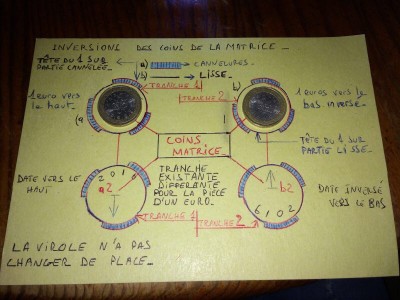 INVERSIONS DES COINS DE LA MATRICE_
TÊTE DU 1 SUR
PARTIE CANNELÉE_
a) CANNELURES
b) LISSE_
TRANCHE 1
TRANCHE 2
b)
1 euro vers
le haut.
(a
1 euros vers le
bas inverse_
TÊTE DU 1 SUR
PARTIE LISSE_
COINS
MATRICE_
DATE VERS LE
HAUT
2010
a2
TRANCHE
EXISTANTE
DIFFERANTE
POUR LA PIÈCE
D'UN EURO_
b2
6102
DATE INVERSÉ
VERS LE BAS
TRANCHE 1
TRANCHE 2
LA VIROLE N'A PAS
CHANGER DE PLACE_